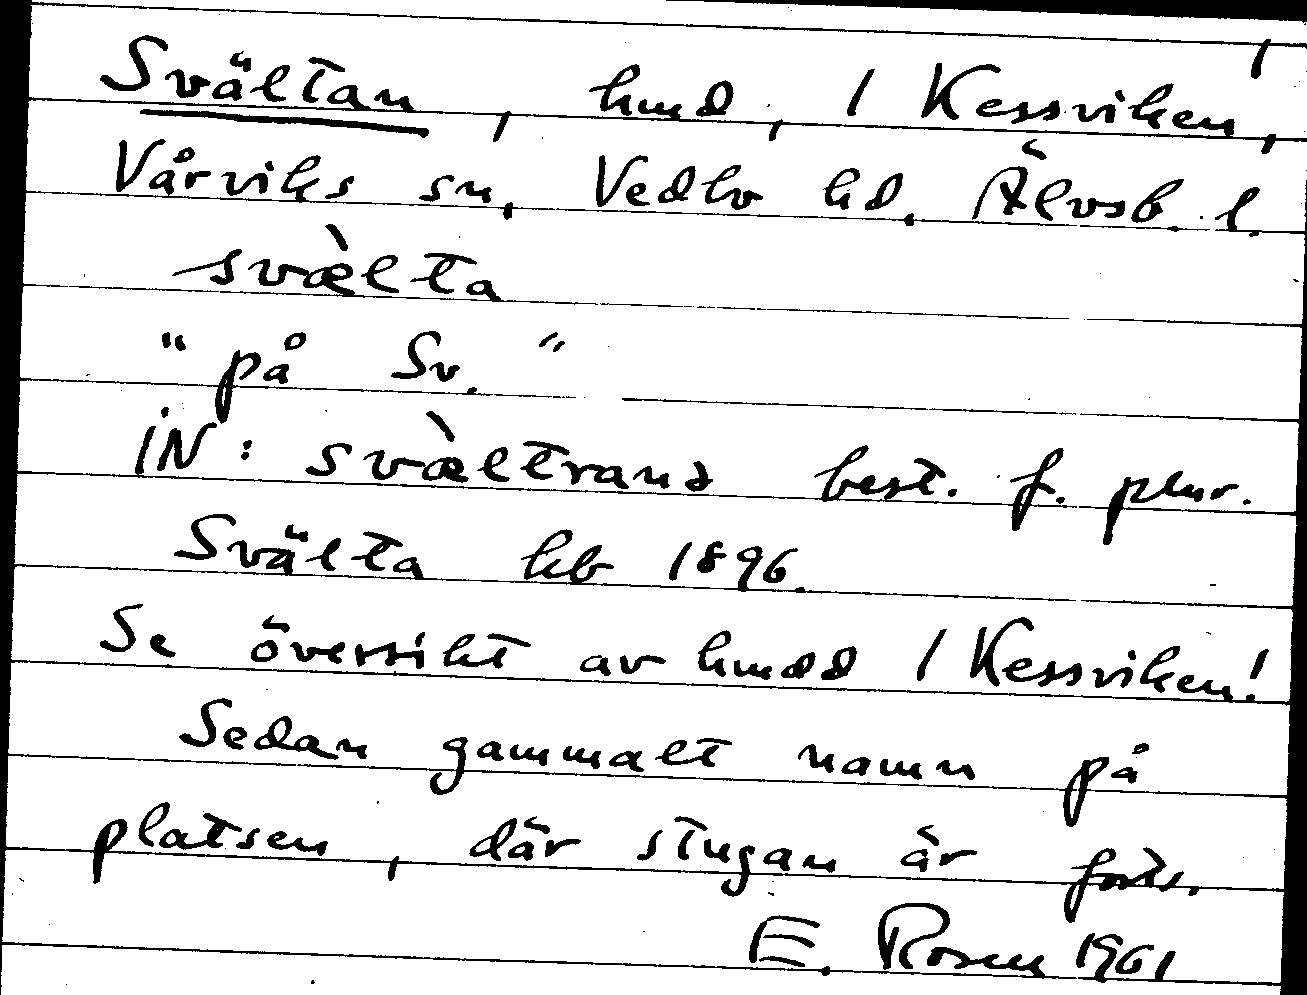 Svältan, hmd, 1 Kessviken,
Vårviks sn, Vedbo hd. Älvsb. l.
svæ̀lta
"på Sv."
IN: svæ̀ltrana best. f. plur.
Svälta kb 1896.
Se översikt av hmdd 1 Kessviken!
Sedan gammalt namn på
platsen, där stugan är forts.
E. Rosen 1961